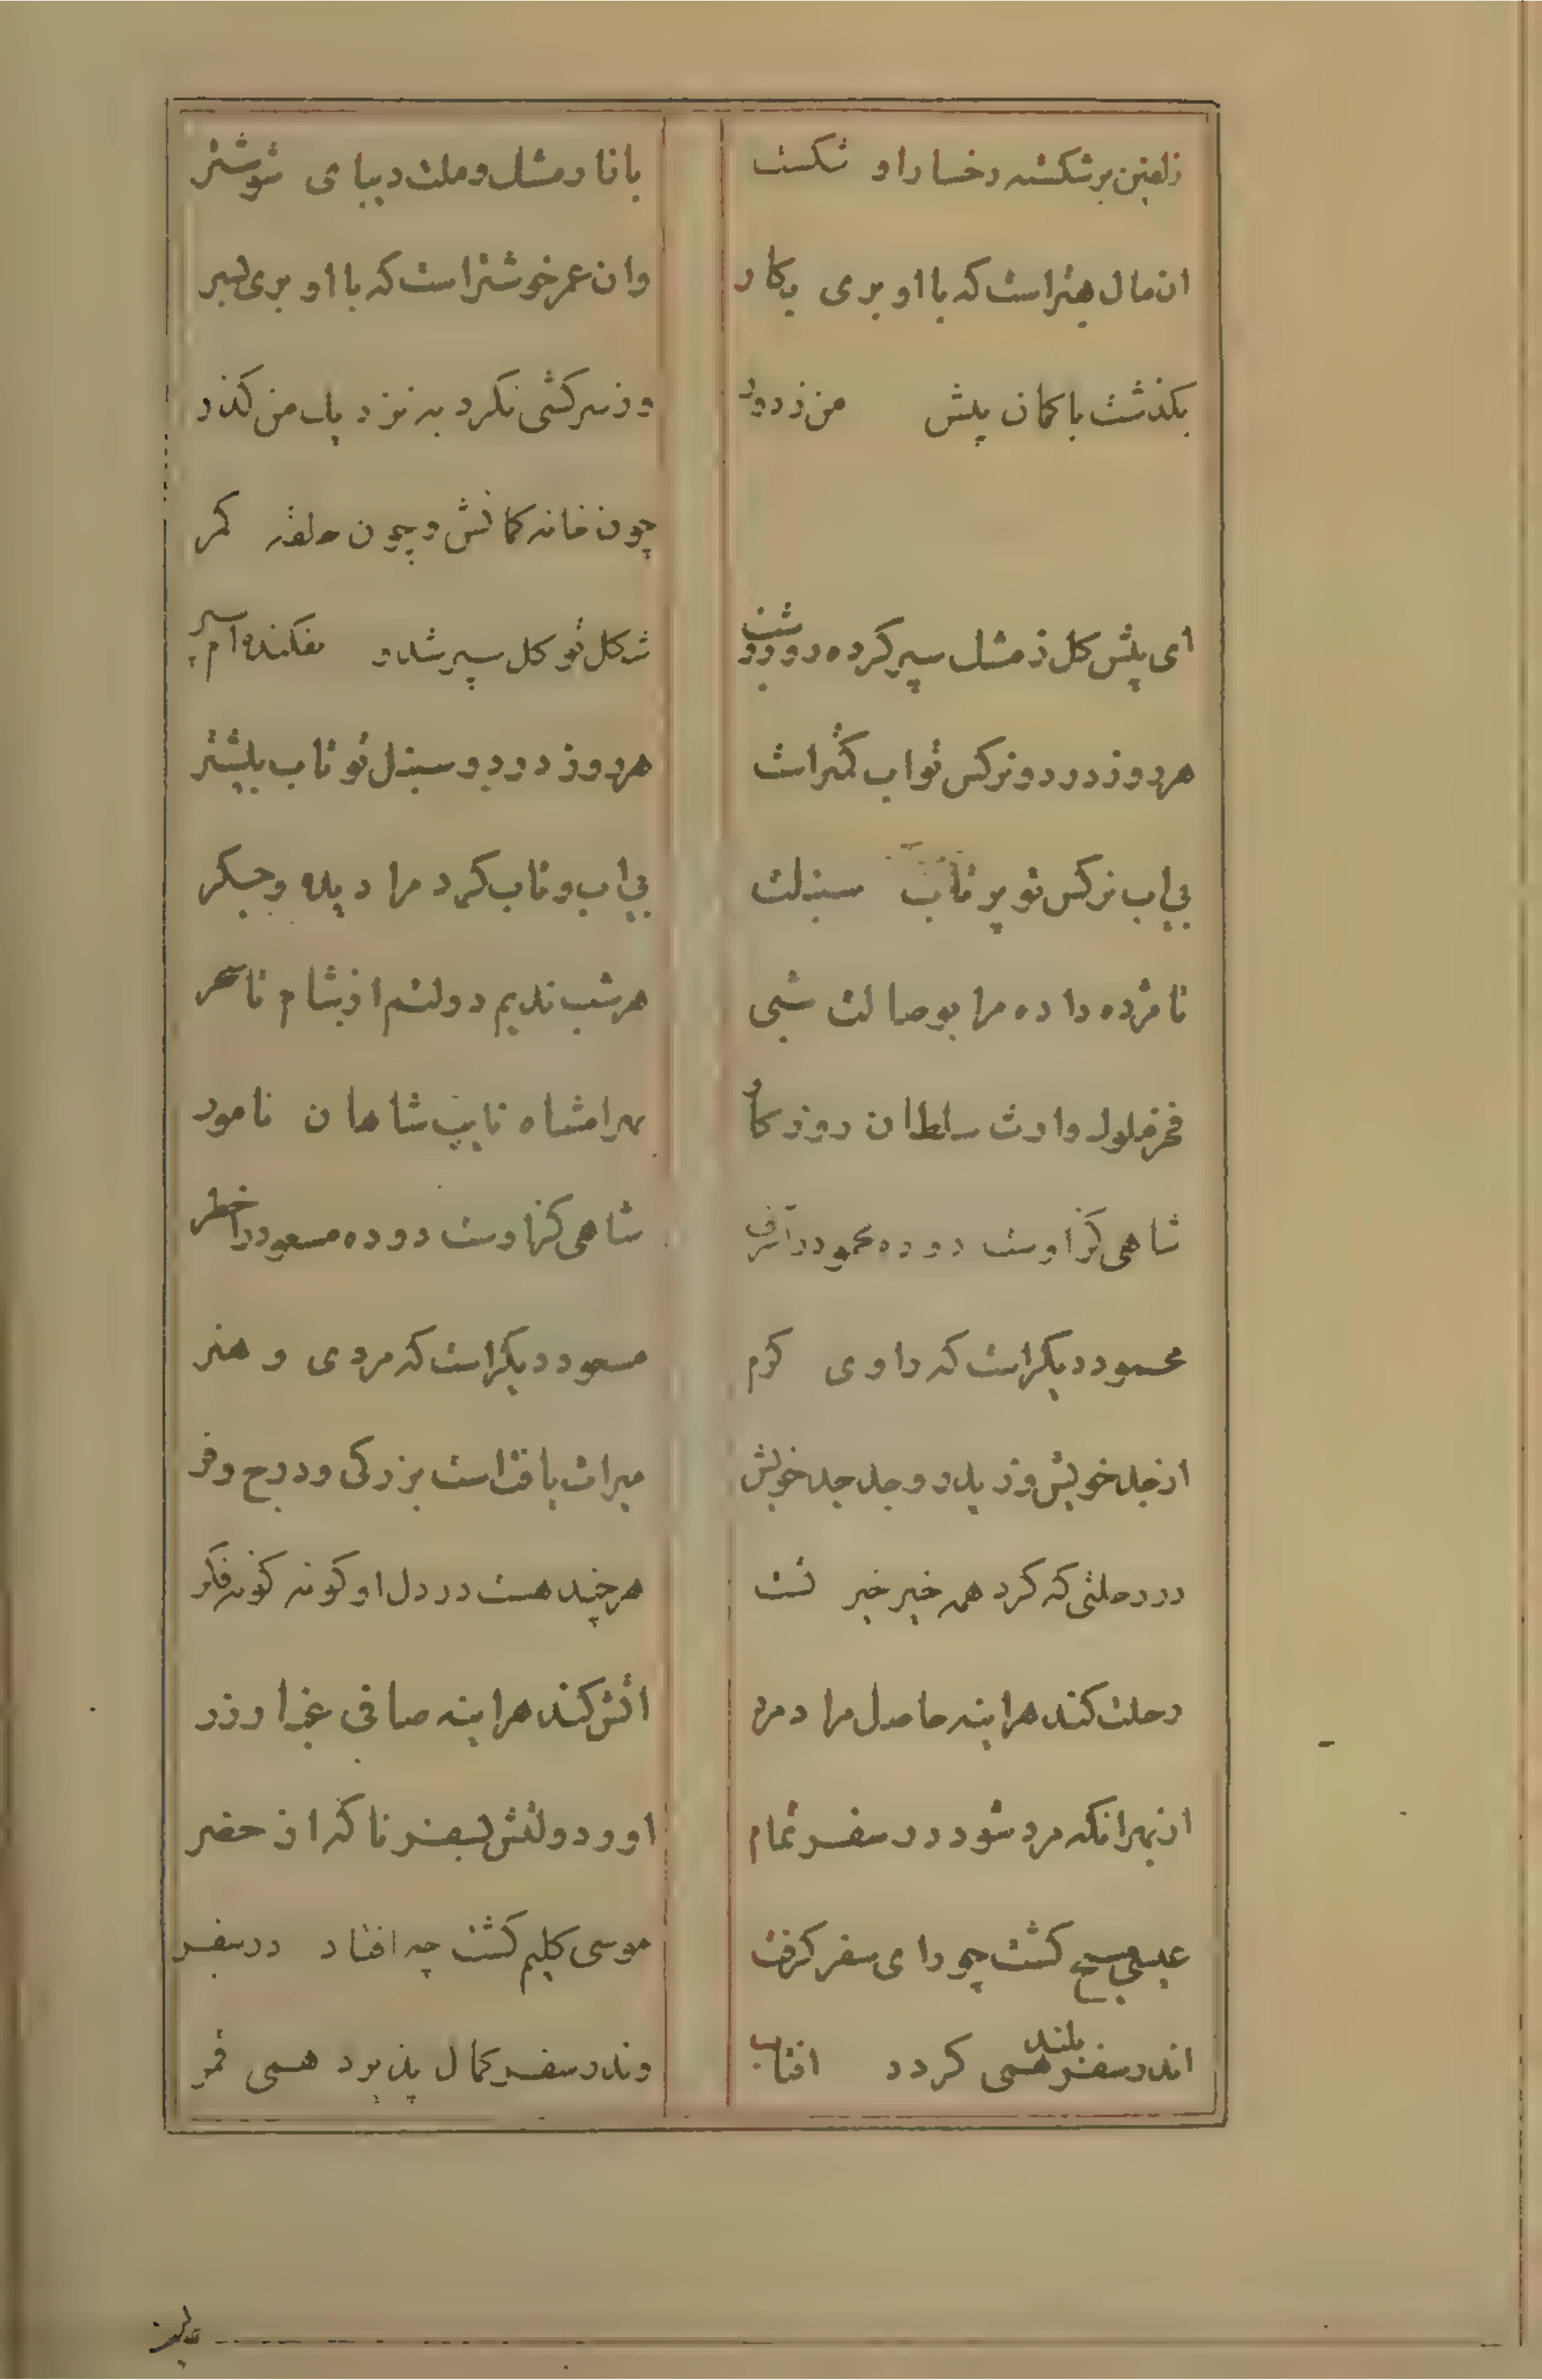 زلفین برشکسته رخسار او شکست
با نار مشک و ملک دیبای شوشتر
ان مال بهتر است که با او بری بکار
وان عمر خوشتر است که با او بری بسر
بکذشت با کمان پیش من ز دور
وز سرکشی نکرد به نزدیک من کذر
چون خانه کمانش و چون حلقه کمر
ای پیش کل ز مشک سپر کرده
کل تو کل سپر شد و بفکنده ام سپر
هر روز در دو نرکس تو اب کمتر است
هر روز در دو سنبل تو تاب بیشتر
بی اب نرکس تو پر تاب سنبلت
بی اب و تاب کرد مرا دیده و جکر
تا مژده داده مرا بوصالت شبی
هر شب ندیم دولتم از شام تا سحر
فخر ملوک وارث سلطان روزکار
بهرامشاه نایب شاهان نامور
شاهی کز اوست دوده محمود را شرف
شاهی کز اوست دوده مسعود را خطر
محمود دیکر است که رادی کرم
مسعود دیکر است که مردی و هنر
از جد خویش وز پدر و جد جد خویش
میراث یافت است بزرکی و درج و فر
در رحلتی که کرد همه خیر خیر نست
هر چند هست در دل او کونه کونه فکر
رحلت کند هراینه حاصل مراد مرد
اتش کند هراینه صافی عیار زر
از بهر انکه مرد شود در سفر تمام
اورد دولتش بسفر ناکه از حضر
عیسی مسیح کشت چو رای سفر کرفت
موسی کلیم کشت چه افتاد در سفر
اندر سفر بلند همی کردد افتاب
وندر سفر کمال پذیرد همی قمر